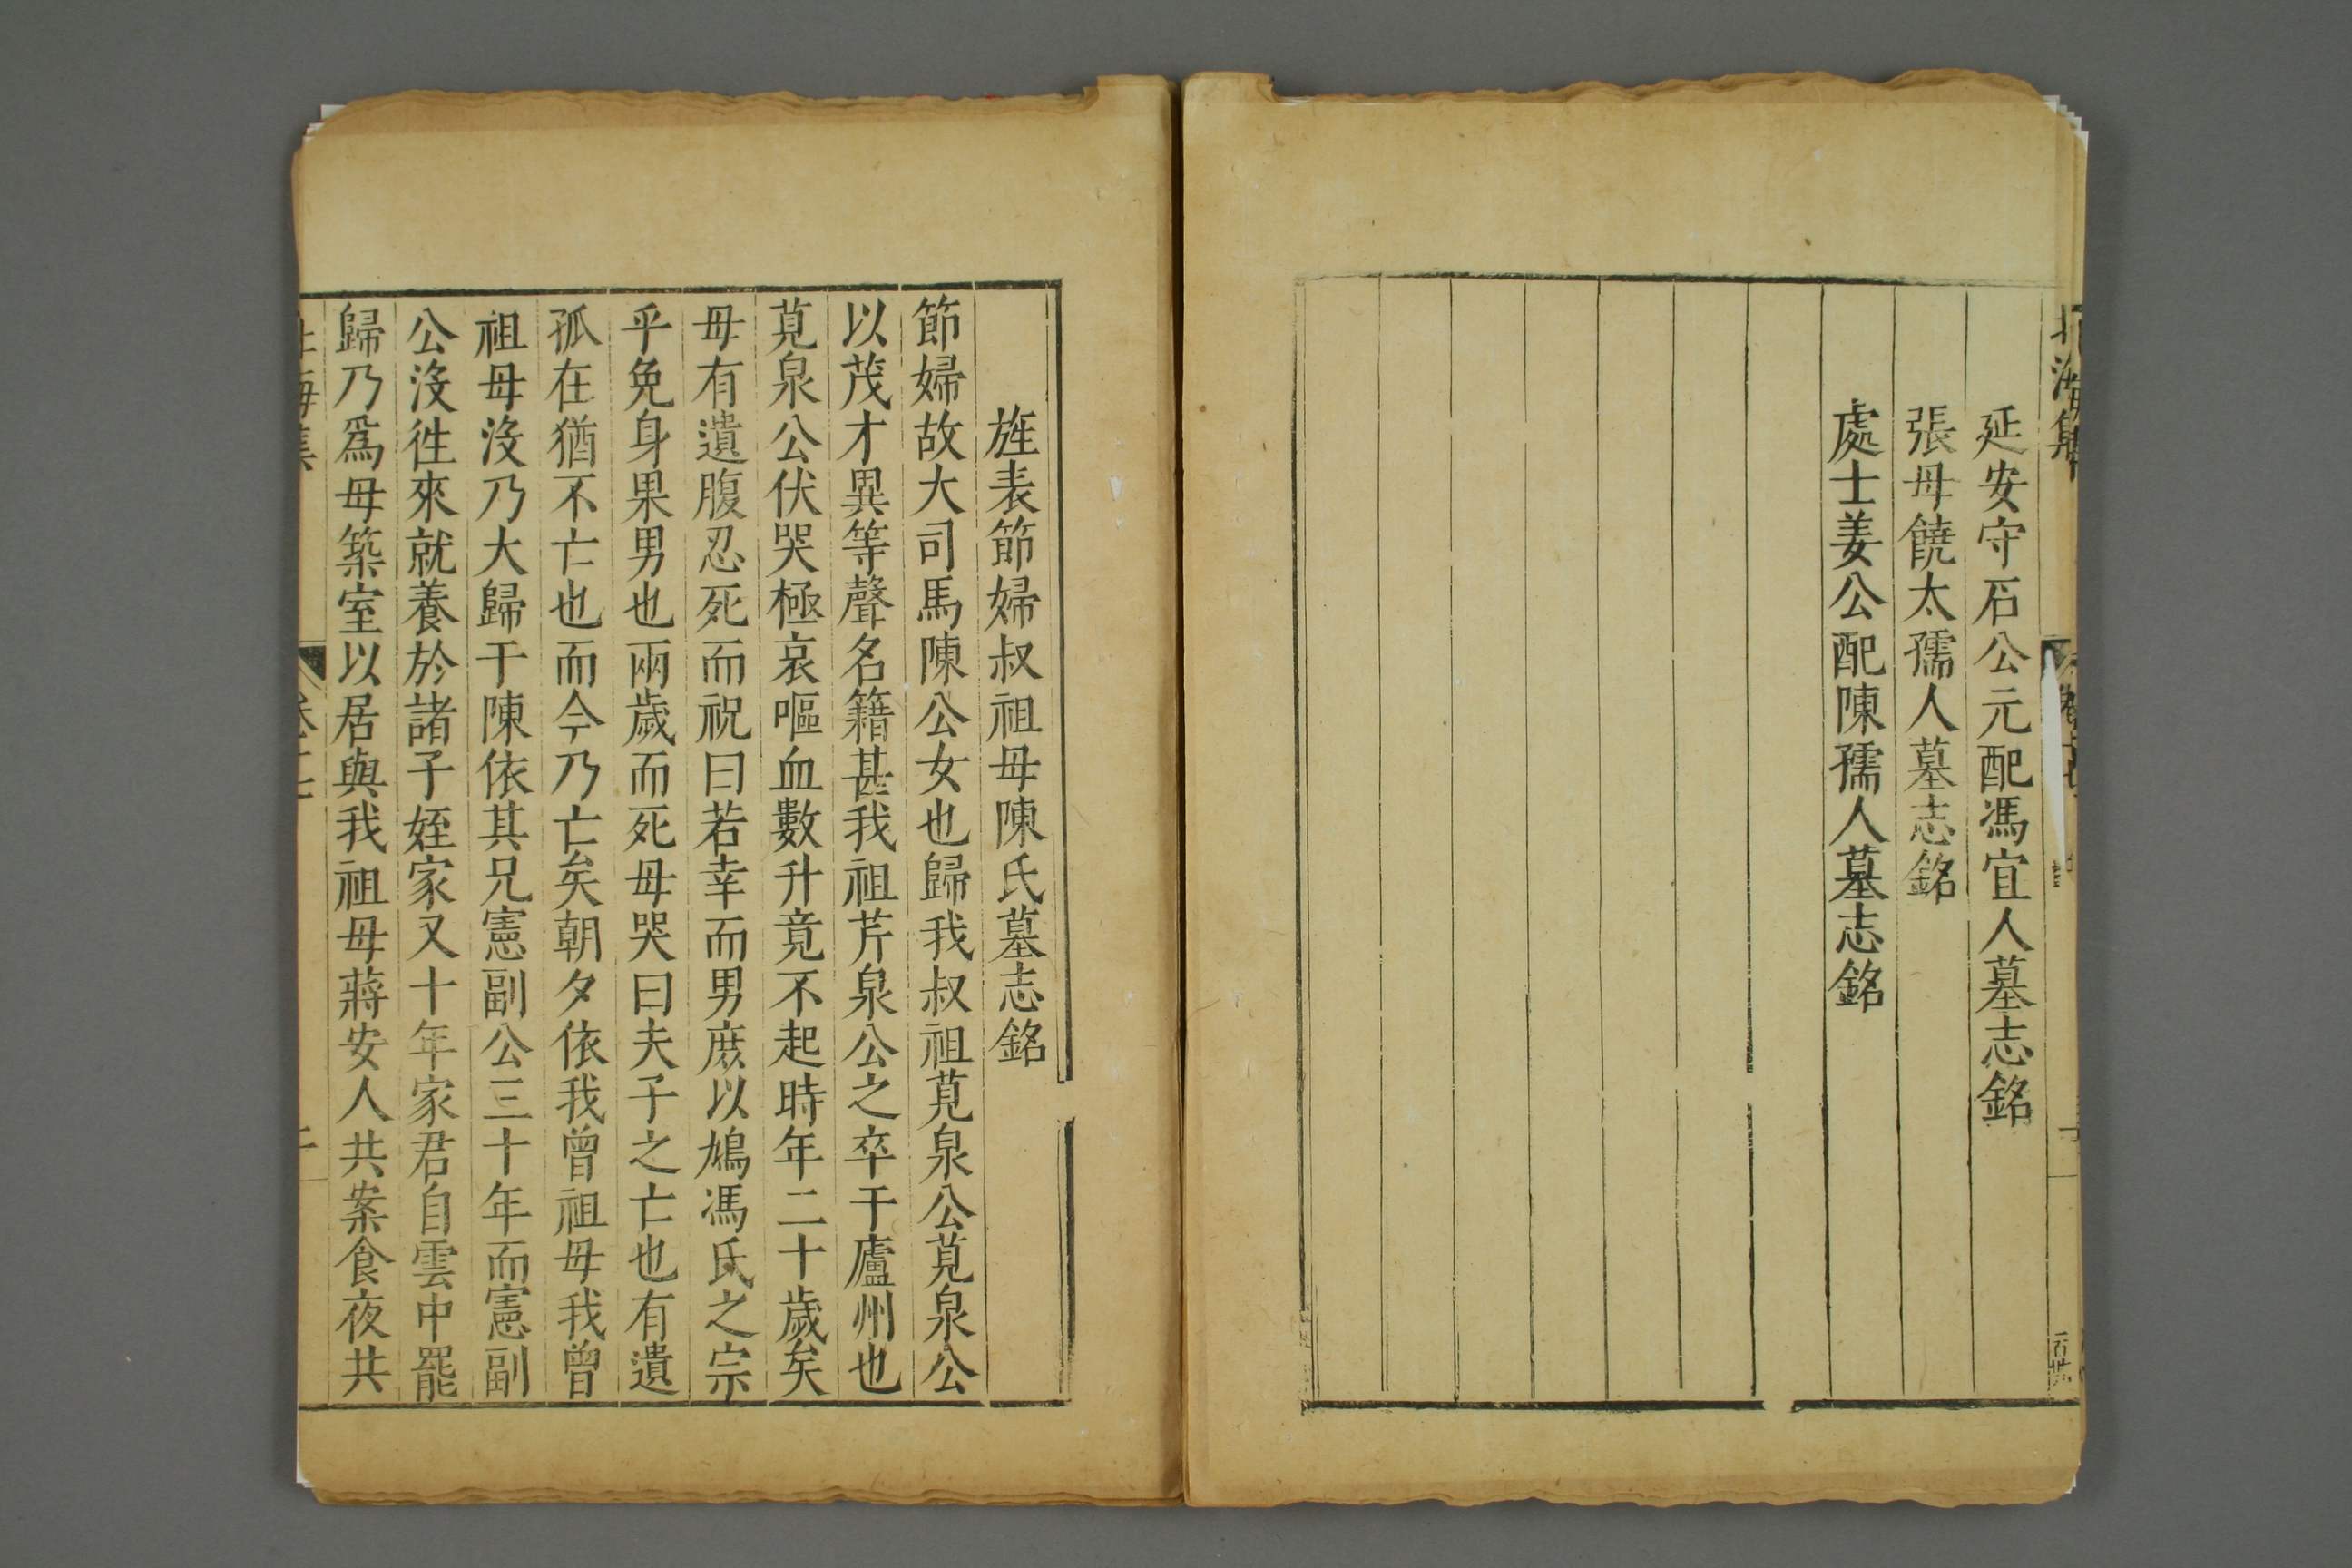 北海集
延安守石公元配馮宜人墓志銘
張母饒太孺人墓志銘
處士姜公配陳孺人墓志銘
旌表節婦叔祖母陳氏墓志銘
節婦故大司馬陳公女也歸我叔祖莧泉公莧泉公
以茂才異等聲名籍甚我祖芹泉公之卒于廬州也
莧泉公伏哭極哀嘔血數升竟不起時年二十歲矣
母有遺腹忍死而祝曰若幸而男庶以鳩馮氏之宗
乎免身果男也兩歲而死母哭曰夫子之亡也有遺
孤在猶不亡也而今乃亡矣朝夕依我曾祖母我曾
祖母沒乃大歸于陳依其兄憲副公三十年而憲副
公沒徃來就養於諸子姪家又十年家君自雲中罷
歸乃爲母築室以居與我祖母蔣安人共案食夜共